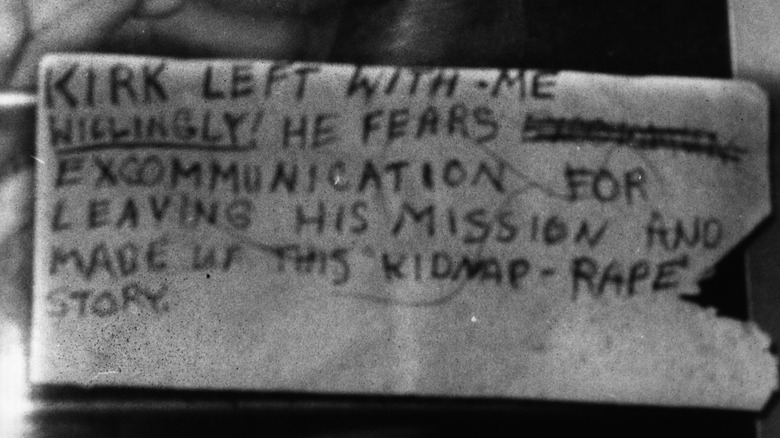 KIRK LEFT WITH ME
WILLINGLY! HE FEARS
EXCOMMUNICATION FOR
LEAVING HIS MISSION AND
MADE UP THIS "KIDNAP-RAPE"
STORY.